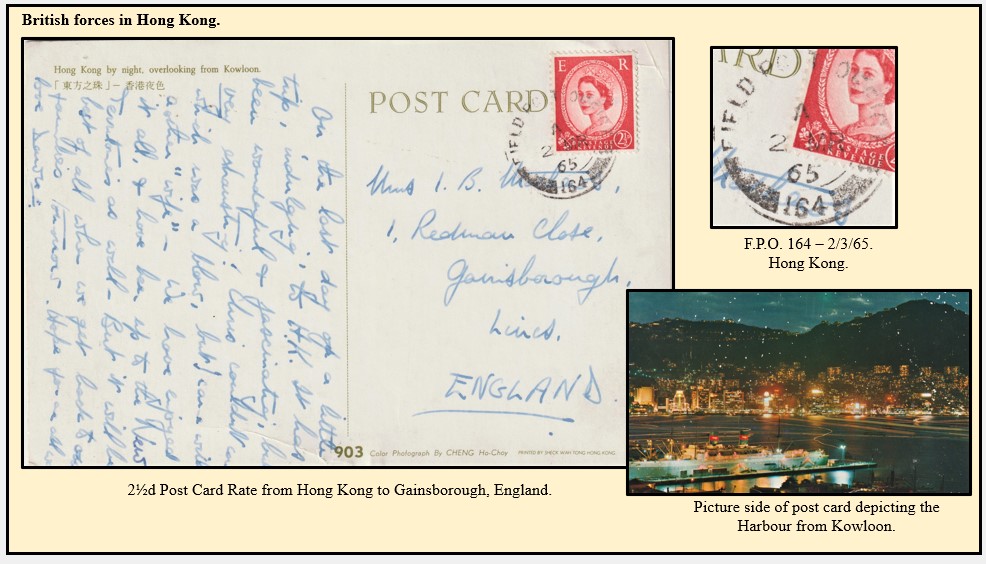 British forces in Hong Kong.
Hong Kong by night, overlooking from Kowloon.
「東方之珠」— 香港夜色
POST CARD
E R
2½
POSTAGE
REVENUE
FIELD
2
65
164
On the last day of a little
trip, including to H.K. It has
been wonderful & fascinating, &
very exhausting!
which was a blow, but came with
another "wife" – we have enjoyed
it all, & have been up to the New
Territories as well – But it will be
best of all when we get back to our
families
love
1. B.
1, Redman Close,
Gainsborough,
Lincs.
ENGLAND.
903 Color Photograph By CHENG Ho-Choy PRINTED BY SHECK WAH TONG HONG KONG
ARD
FIELD
2
65
164
POSTAGE
REVENUE
F.P.O. 164 – 2/3/65.
Hong Kong.
2½d Post Card Rate from Hong Kong to Gainsborough, England.
Picture side of post card depicting the
Harbour from Kowloon.